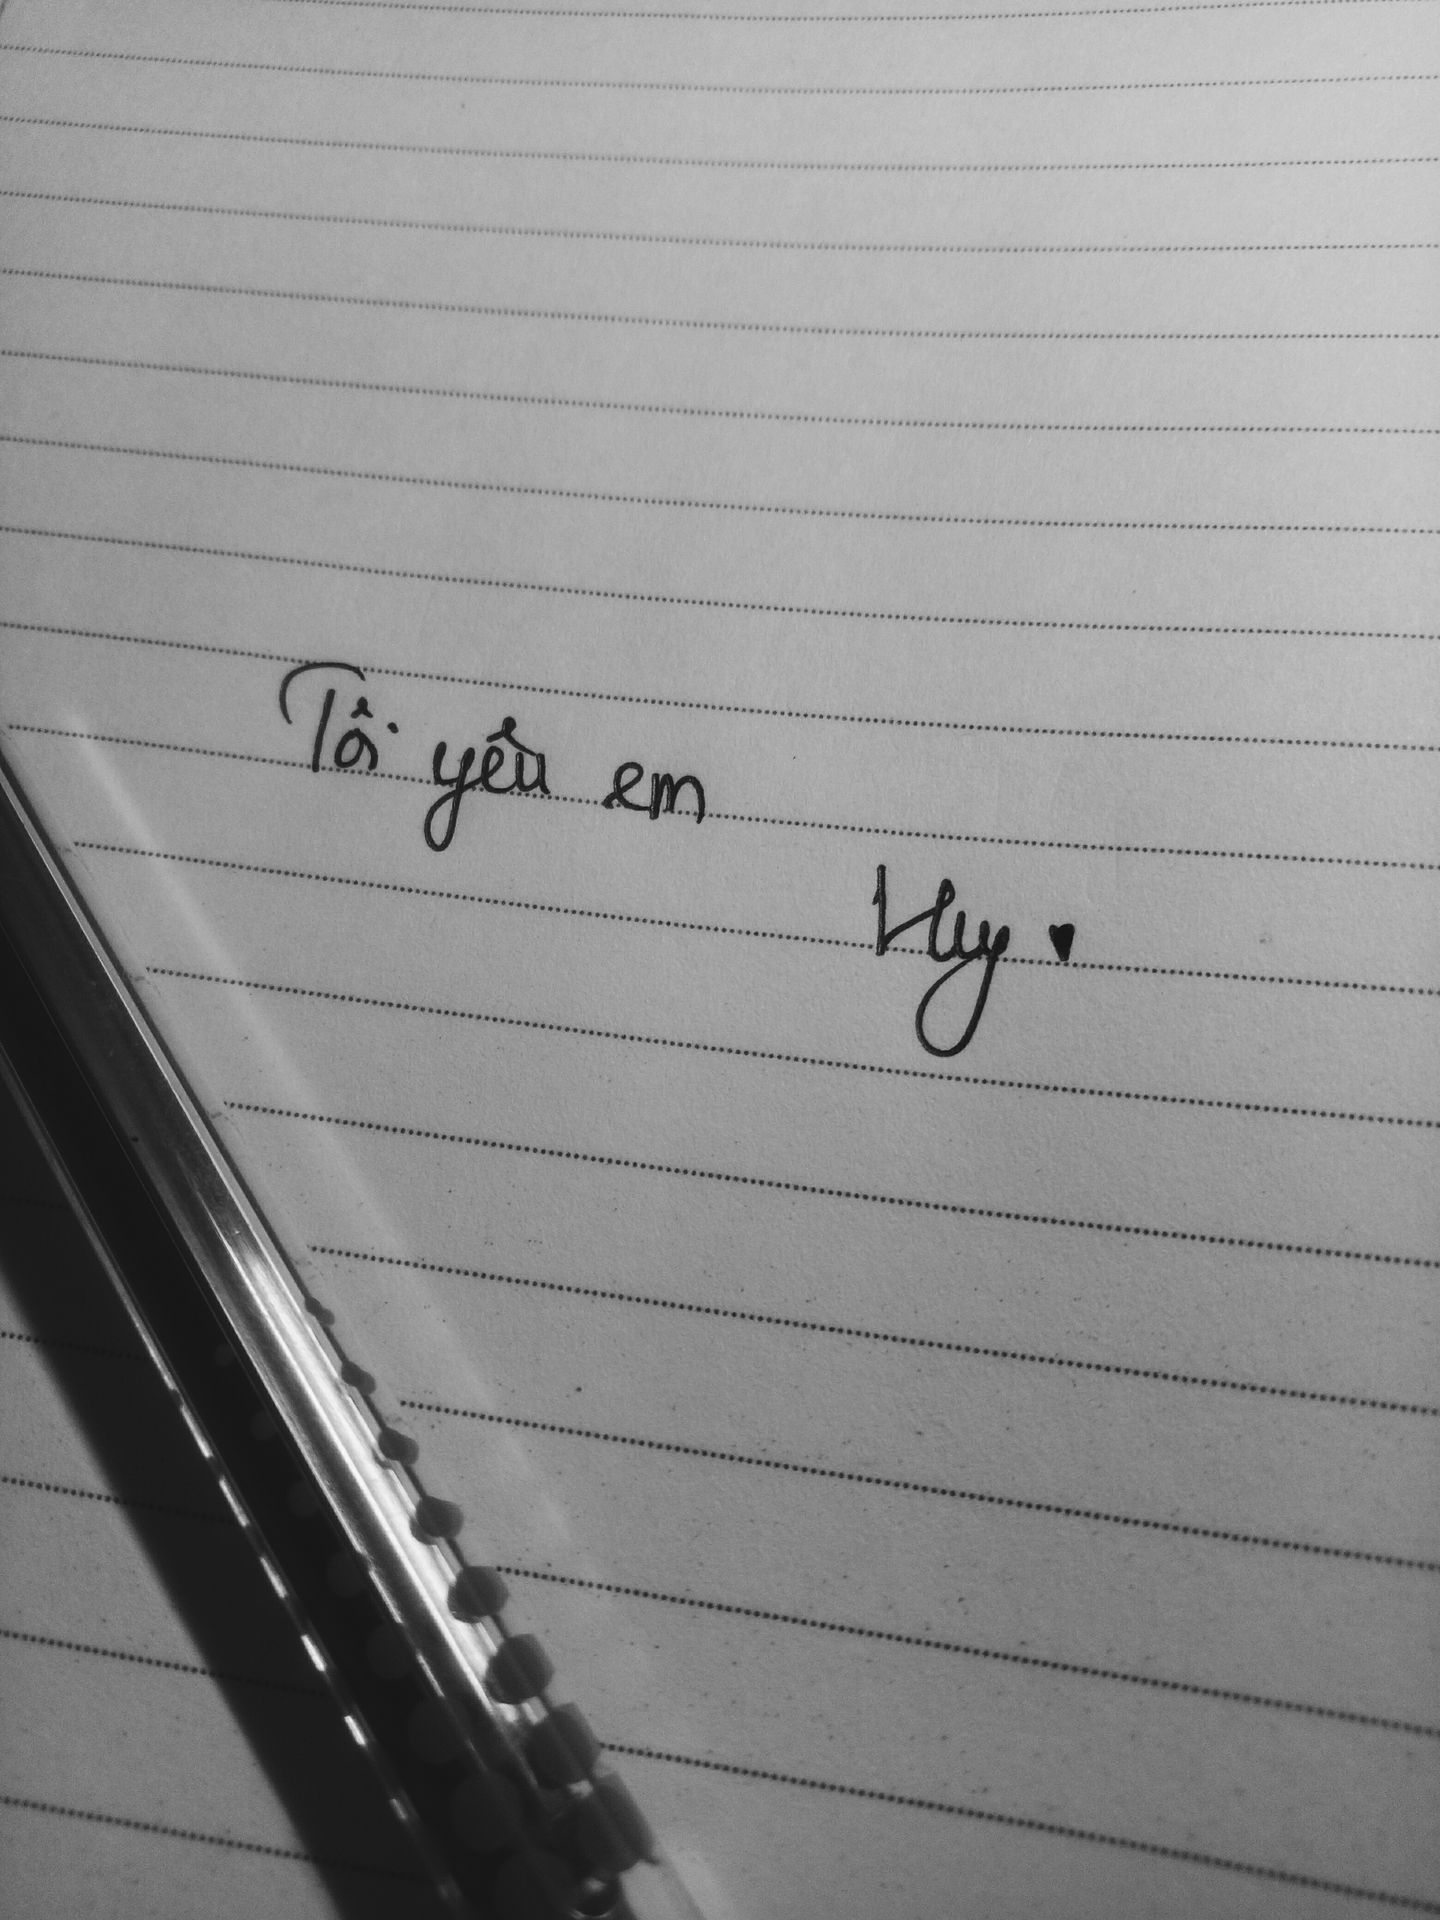 Tôi yêu em
Huy ♥